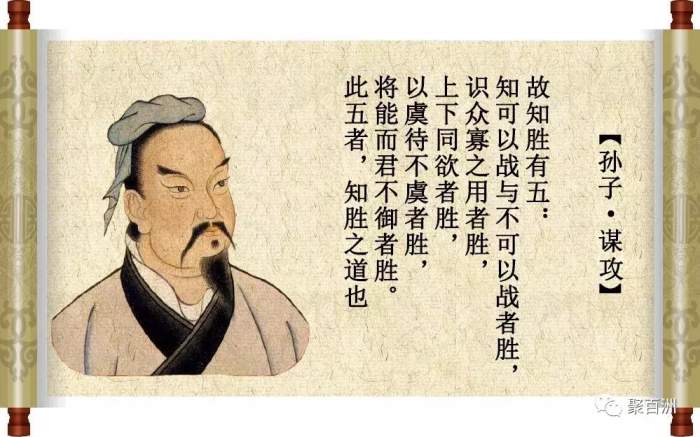 【孙子·谋攻】
故知胜有五：
知可以战与不可以战者胜，
识众寡之用者胜，
上下同欲者胜，
以虞待不虞者胜，
将能而君不御者胜。
此五者，知胜之道也
聚百洲